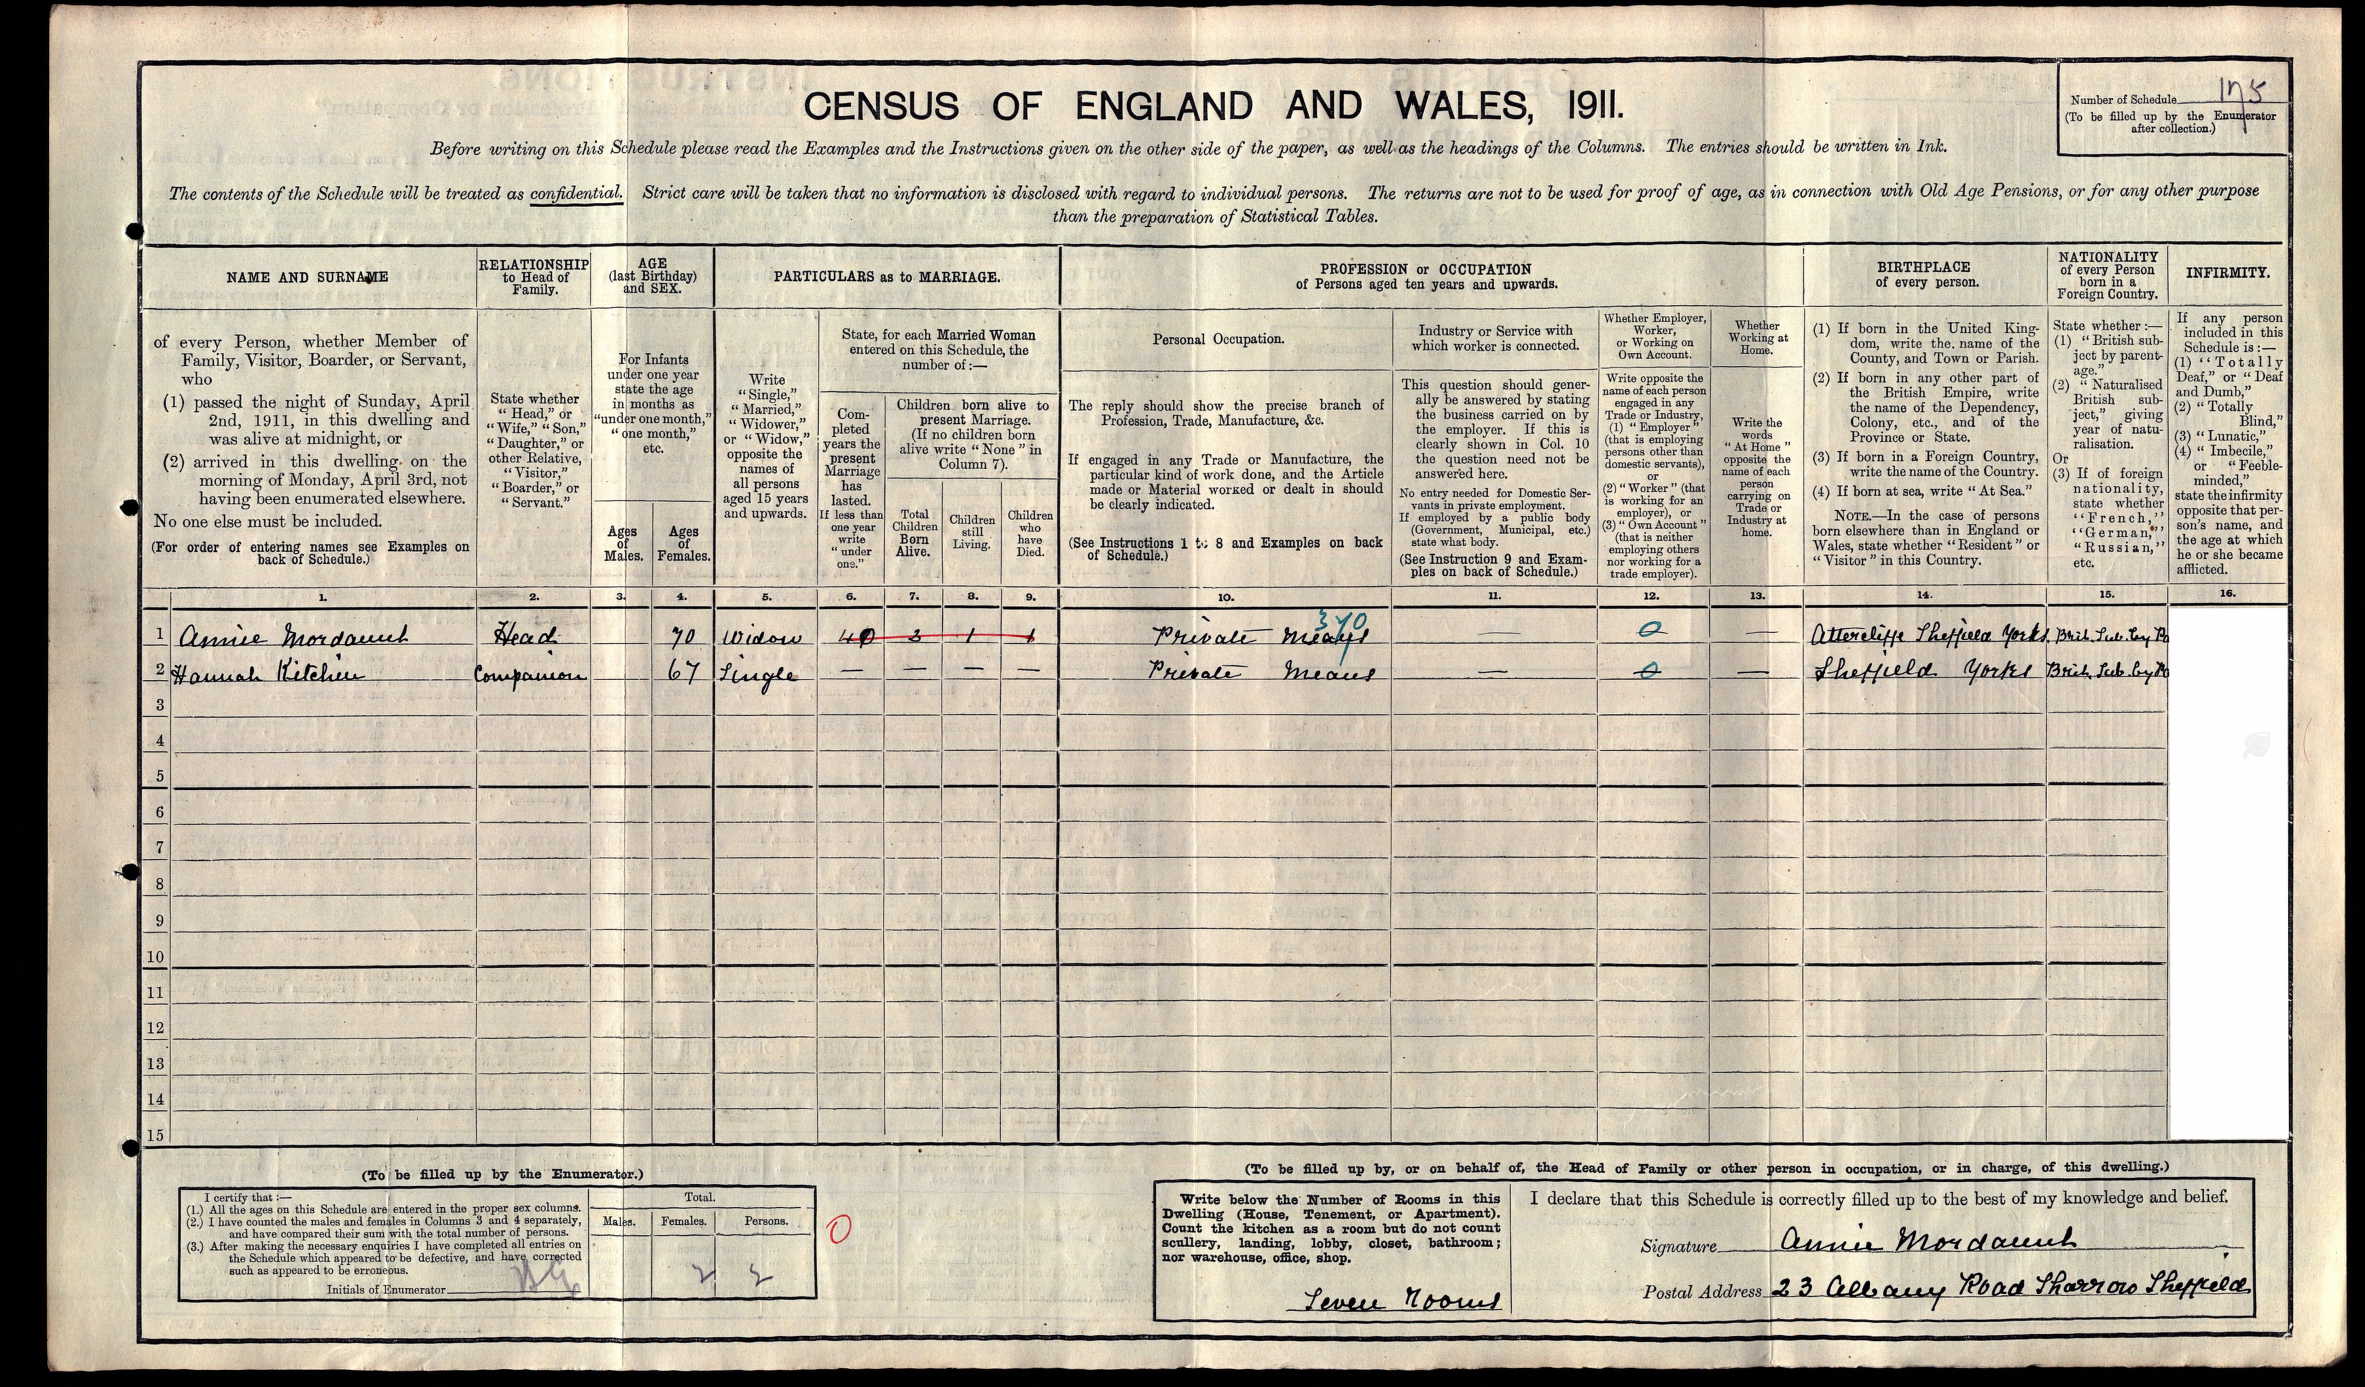 CENSUS OF ENGLAND AND WALES, 1911.
Number of Schedule 175
(To be filled up by the Enumerator
after collection.)
Before writing on this Schedule please read the Examples and the Instructions given on the other side of the paper, as well as the headings of the Columns. The entries should be written in Ink.
The contents of the Schedule will be treated as confidential. Strict care will be taken that no information is disclosed with regard to individual persons. The returns are not to be used for proof of age, as in connection with Old Age Pensions, or for any other purpose
than the preparation of Statistical Tables.
NAME AND SURNAME
of every Person, whether Member of
Family, Visitor, Boarder, or Servant,
who
(1) passed the night of Sunday, April
2nd, 1911, in this dwelling and
was alive at midnight, or
(2) arrived in this dwelling on the
morning of Monday, April 3rd, not
having been enumerated elsewhere.
No one else must be included.
(For order of entering names see Examples on
back of Schedule.)
RELATIONSHIP
to Head of
Family.
State whether
"Head," or
"Wife," "Son,"
"Daughter," or
other Relative,
"Visitor,"
"Boarder," or
"Servant."
AGE
(last Birthday)
and SEX.
For Infants
under one year
state the age
in months as
"under one month,"
"one month,"
etc.
Ages
of
Males.
Ages
of
Females.
PARTICULARS as to MARRIAGE.
Write
"Single,"
"Married,"
"Widower,"
or "Widow,"
opposite the
names of
all persons
aged 15 years
and upwards.
State, for each Married Woman
entered on this Schedule, the
number of:—
Com-
pleted
years the
present
Marriage
has
lasted.
If less than
one year
write
"under
one."
Children born alive to
present Marriage.
(If no children born
alive write "None" in
Column 7).
Total
Children
Born
Alive.
Children
still
Living.
Children
who
have
Died.
PROFESSION or OCCUPATION
of Persons aged ten years and upwards.
Personal Occupation.
The reply should show the precise branch of
Profession, Trade, Manufacture, &c.
If engaged in any Trade or Manufacture, the
particular kind of work done, and the Article
made or Material worked or dealt in should
be clearly indicated.
(See Instructions 1 to 8 and Examples on back
of Schedule.)
Industry or Service with
which worker is connected.
This question should gener-
ally be answered by stating
the business carried on by
the employer. If this is
clearly shown in Col. 10
the question need not be
answered here.
No entry needed for Domestic Ser-
vants in private employment.
If employed by a public body
(Government, Municipal, etc.)
state what body.
(See Instruction 9 and Exam-
ples on back of Schedule.)
Whether Employer,
Worker,
or Working on
Own Account.
Write opposite the
name of each person
engaged in any
Trade or Industry,
(1) "Employer"
(that is employing
persons other than
domestic servants),
or
(2) "Worker" (that
is working for an
employer), or
(3) "Own Account"
(that is neither
employing others
nor working for a
trade employer).
Whether
Working at
Home.
Write the
words
"At Home"
opposite the
name of each
person
carrying on
Trade or
Industry at
home.
BIRTHPLACE
of every person.
(1) If born in the United King-
dom, write the name of the
County, and Town or Parish.
(2) If born in any other part of
the British Empire, write
the name of the Dependency,
Colony, etc., and of the
Province or State.
(3) If born in a Foreign Country,
write the name of the Country.
(4) If born at sea, write "At Sea."
NOTE.—In the case of persons
born elsewhere than in England or
Wales, state whether "Resident" or
"Visitor" in this Country.
NATIONALITY
of every Person
born in a
Foreign Country.
State whether:—
(1) "British sub-
ject by parent-
age."
(2) "Naturalised
British sub-
ject," giving
year of natu-
ralisation.
Or
(3) If of foreign
nationality,
state whether
"French,"
"German,"
"Russian,"
etc.
INFIRMITY.
If any person
included in this
Schedule is:—
(1) "Totally
Deaf," or "Deaf
and Dumb,"
(2) "Totally
Blind,"
(3) "Lunatic,"
(4) "Imbecile,"
or "Feeble-
minded,"
state the infirmity
opposite that per-
son's name, and
the age at which
he or she became
afflicted.
1. 2. 3. 4. 5. 6. 7. 8. 9. 10. 11. 12. 13. 14. 15. 16.
370
1 Annie Mordaunt Head 70 Widow 40 2 1 1 Private Means — 0 — Attercliffe Sheffield Yorks Brit. Sub. by Pa
2 Hannah Kitchin Companion 67 Single — — — — Private Means — 0 — Sheffield Yorks Brit. Sub. by Pa
3
4
5
6
7
8
9
10
11
12
13
14
15
(To be filled up by the Enumerator.)
I certify that:—
(1.) All the ages on this Schedule are entered in the proper sex columns.
(2.) I have counted the males and females in Columns 3 and 4 separately,
and have compared their sum with the total number of persons.
(3.) After making the necessary enquiries I have completed all entries on
the Schedule which appeared to be defective, and have corrected
such as appeared to be erroneous.
Initials of Enumerator
Total.
Males. Females. Persons.
2 2
0
(To be filled up by, or on behalf of, the Head of Family or other person in occupation, or in charge, of this dwelling.)
Write below the Number of Rooms in this
Dwelling (House, Tenement, or Apartment).
Count the kitchen as a room but do not count
scullery, landing, lobby, closet, bathroom;
nor warehouse, office, shop.
Seven Rooms
I declare that this Schedule is correctly filled up to the best of my knowledge and belief.
Signature Annie Mordaunt
Postal Address 23 Albany Road Sharrow Sheffield